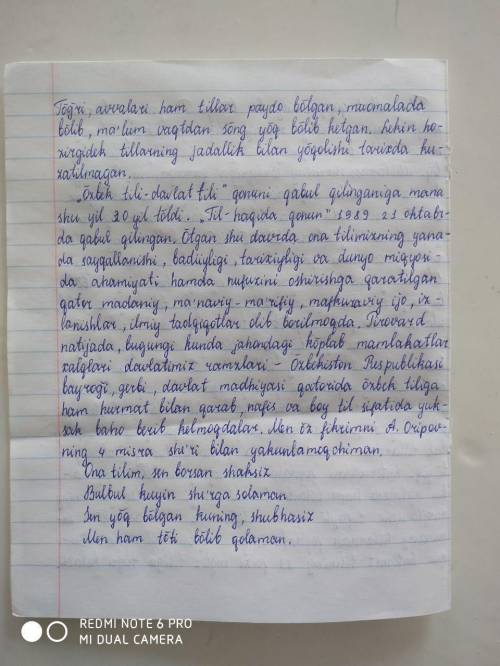 Tōḡri, avvalari ham tillar paydo bōlgan, muomalada
bōlib, ma'lum vaqtdan sōng yōq bōlib ketgan. Lekin ho-
zirgidek tillarning jadallik bilan yōqolishi tarixda ku-
zatilmagan.
„Ōzbek tili-davlat tili" qonuni qabul qilinganiga mana
shu yil 30 yil tōldi. „Til-haqida qonun" 1989 21 oktabr-
da qabul qilingan. Ōtgan shu davrda ona tilimizning yana-
da sayqallanishi, badiiyligi, tarixiyligi va dunyo miqyosi-
da ahamiyati hamda nufuzini oshirishga qaratilgan
qator madaniy, ma'naviy-ma'rifiy, mafkuraviy ijo, iz-
lanishlar, ilmiy tadqiqotlar olib borilmoqda. Pirovard
natijada, bugungi kunda jahondagi kōplab mamlakatlar
xalqlari davlatimiz ramzlari - Ōzbekiston Respublikasi
bayroḡi, gerbi, davlat madhiyasi qatorida ōzbek tiliga
ham hurmat bilan qarab, nafis va boy til sifatida yuk-
sak baho berib kelmoqdalar. Men ōz fikrimni A. Oripov-
ning 4 misra she'ri bilan yakunlamoqchiman.
Ona tilim, sen borsan shaksiz
Bulbul kuyin she'rga solaman
Sen yōq bōlgan kuning, shubhasiz
Men ham tōti bōlib qolaman.
REDMI NOTE 6 PRO
MI DUAL CAMERA